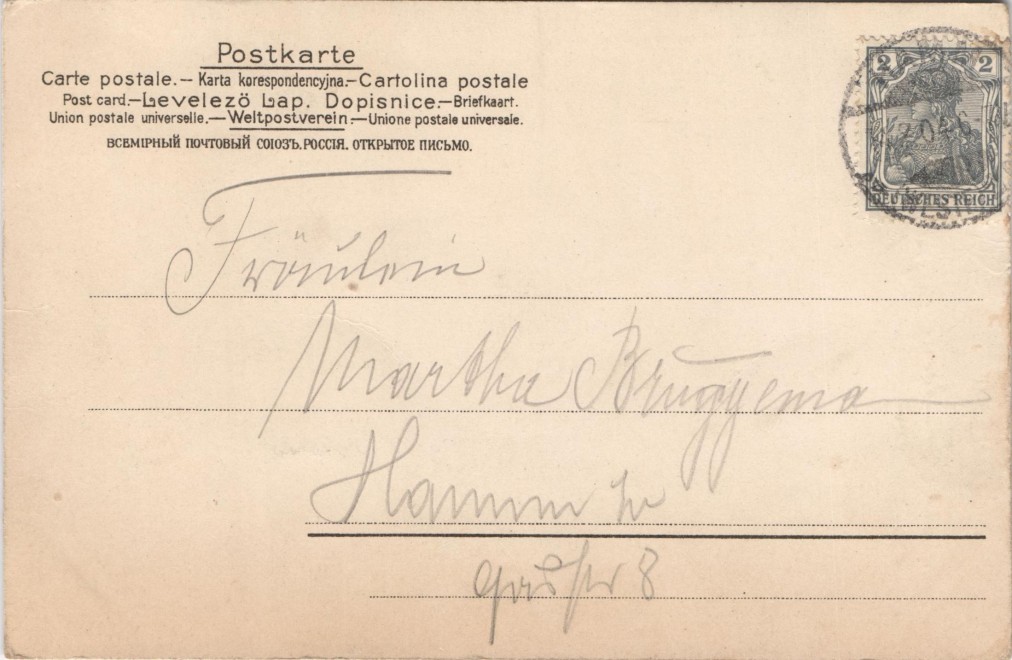 Postkarte
Carte postale.-- Karta korespondencyjna.-Cartolina postale
Post card.-Levelezö Lap. Dopisnice.-Briefkaart.
Union postale universelle.-Weltpostverein.-Unione postale universale.
ВСЕМІРНЫЙ ПОЧТОВЫЙ СОЮЗЪ.РОССІЯ. ОТКРЫТОЕ ПИСЬМО.
2 2
DEUTSCHES REICH
Fräulein
Martha Bruggema
Hamm
8